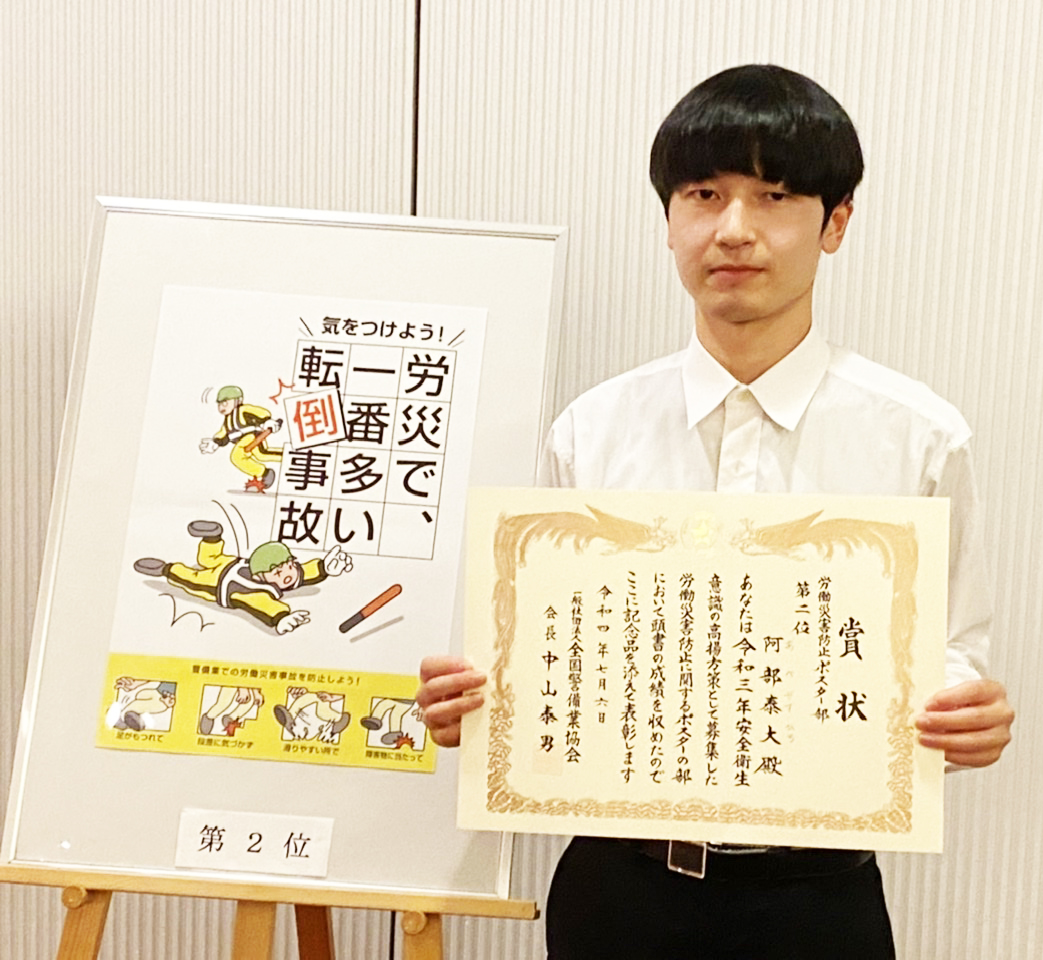 気をつけよう!
労災で、
一番多い
転倒事故
警備業での労働災害事故を防止しよう!
足がもつれて
段差に気づかず
滑りやすい所で
障害物に当たって
第2位
賞状
労働災害防止ポスター部
第二位
阿部泰大殿
あなたは令和三年安全衛生
意識の高揚方策として募集した
労働災害防止に関するポスターの部
において頭書の成績を収めたので
ここに記念品を添えて表彰します
令和四年七月六日
一般社団法人全国警備業協会
会長中山泰男